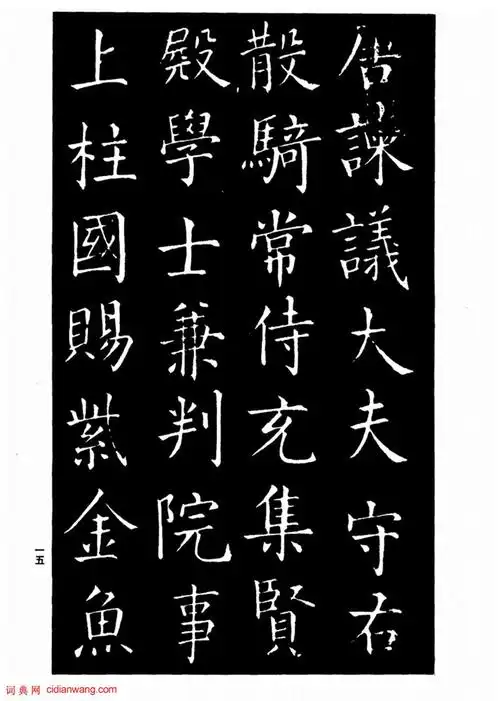 諫議大夫守右
散騎常侍充集賢
殿學士兼判院事
上柱國賜紫金魚
一五
词典网 cidianwang.com